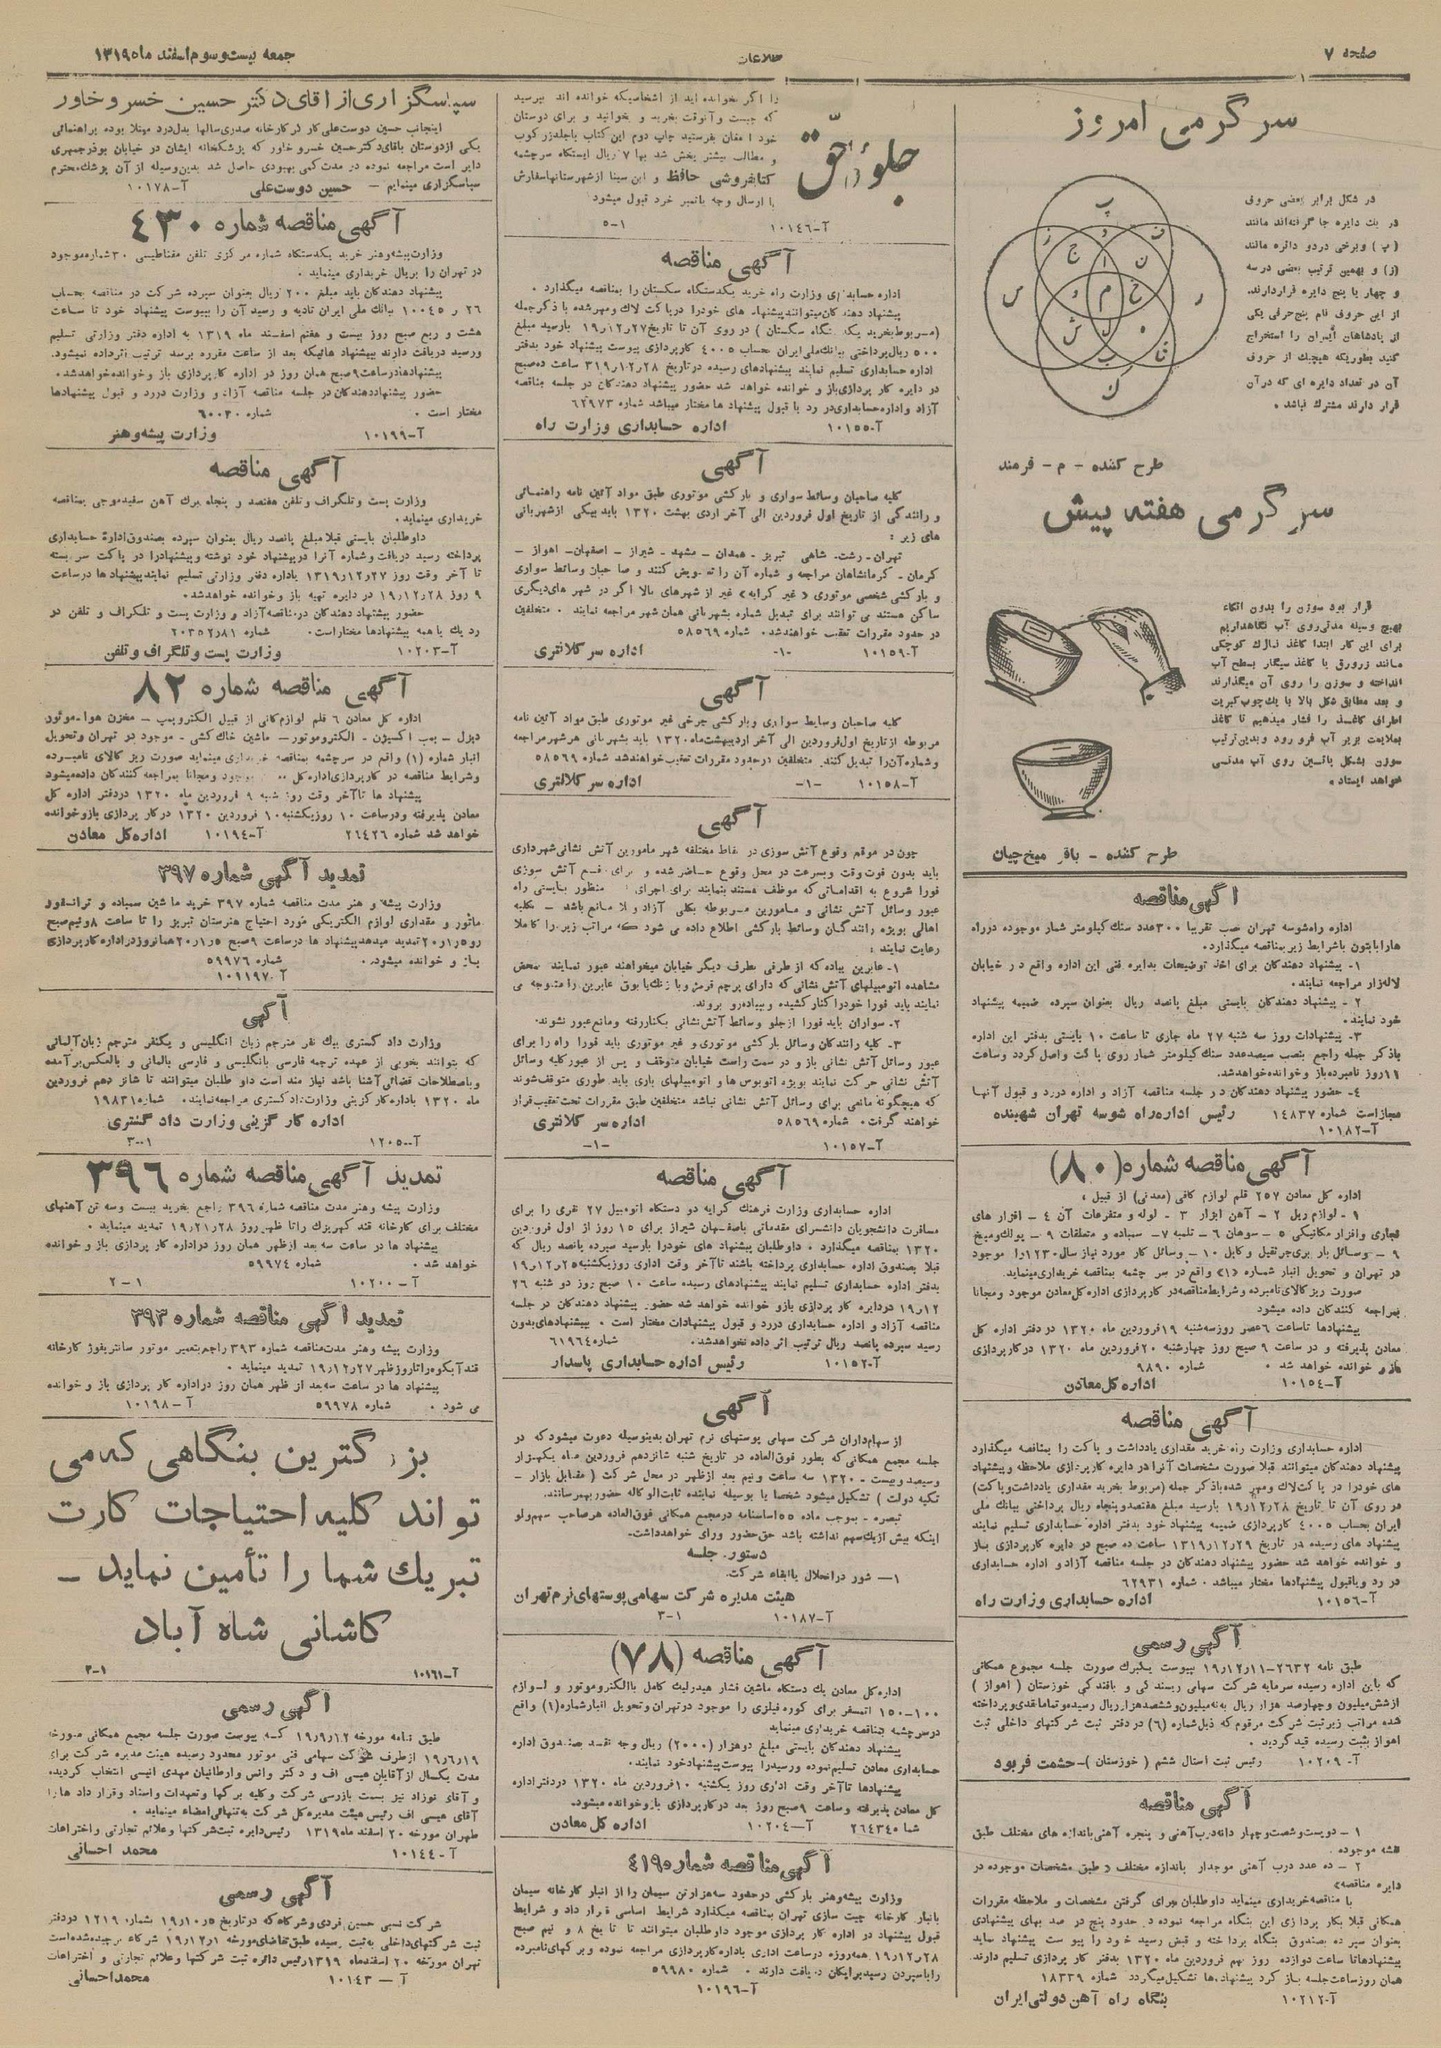 صفحه ۷
اطلاعات
جمعه بیست و سوم اسفند ماه ۱۳۱۹
سرگرمی امروز
در شکل برابر بعضی حروف
در یک دایره جا گرفته‌اند مانند
(پ) و برخی در دو دائره مانند
(ز) و بهمین ترتیب بعضی در سه
و چهار یا پنج دایره قرار دارند.
از این حروف نام پنج حرفی یکی
از پادشاهان ایران را استخراج
کنید بطوریکه هیچیک از حروف
آن در تعداد دایره ای که در آن
قرار دارند مشترک نباشد.
طرح کننده - م - فرمند
سرگرمی هفته پیش
قرار بود سوزن را بدون اتکاء
بهیچ وسیله مدتی روی آب نگاهداریم
برای این کار ابتدا کاغذ نازک کوچکی
مانند زرورق یا کاغذ سیگار بسطح آب
انداخته و سوزن را روی آن میگذارند
و بعد مطابق شکل بالا با یک چوب کبریت
اطراف کاغذ را فشار میدهیم تا کاغذ
بملایمت بزیر آب فرو رود و بدین ترتیب
سوزن بشکل پائین روی آب مدتی
خواهد ایستاد.
طرح کننده - باقر میخ‌چیان
آگهی مناقصه
اداره راه شوسه تهران نصب تقریبا ۳۰۰ عدد سنک کیلومتر شمار موجوده در راه
هارا بایتون با شرایط زیر بمناقصه میگذارد.
۱- پیشنهاد دهندگان برای اخذ توضیحات بدایره فنی این اداره واقع در خیابان
لاله‌زار مراجعه نمایند.
۲ - پیشنهاد دهندگان بایستی مبلغ پانصد ریال بعنوان سپرده ضمیمه پیشنهاد
خود نمایند.
۳- پیشنهادات روز سه شنبه ۲۷ ماه جاری تا ساعت ۱۰ بایستی بدفتر این اداره
باذکر جمله راجع بنصب سیصد عدد سنک کیلومتر شمار روی پاکت واصل گردد و ساعت
۱۱ روز نامبرده باز و خوانده خواهد شد.
۴- حضور پیشنهاد دهندگان در جلسه مناقصه آزاد و اداره در رد و قبول آنها
مجاز است شماره ۱۴۸۳۷ رئیس اداره راه شوسه تهران شهبنده
آ-۱۰۱۸۲
آگهی مناقصه شماره (۸۰)
اداره کل معادن ۲۵۷ قلم لوازم کافی (معدنی) از قبیل:
۱- لوازم ریل ۲ - آهن ابزار ۳ - لوله و متفرعات آن ۴ - افزار های
نجاری و افزار مکانیکی ۵ - سوهان ۶ - تلمبه ۷ - سمباده و متعلقات ۹ - پولک و میخ
در تهران و تحویل انبار شماره (۱) واقع در سر چشمه بمناقصه خریداری مینماید.
صورت ریز کالای نامبرده و شرایط مناقصه در کارپردازی اداره کل معادن موجود و مجانا
بمراجعه کنندگان داده میشود
پیشنهادها تا ساعت ۶ عصر روز سه‌شنبه ۱۹ فروردین ماه ۱۳۲۰ در دفتر اداره کل
معادن پذیرفته و در ساعت ۹ صبح روز چهارشنبه ۲۰ فروردین ماه ۱۳۲۰ در کارپردازی
باز و خوانده خواهد شد. شماره ۹۸۹۰
آ-۱۰۱۵۴ اداره کل معادن
آگهی مناقصه
اداره حسابداری وزارت راه خرید مقداری یادداشت و پاکت را بمناقصه میگذارد
پیشنهاد دهندگان میتوانند قبلا صورت مشخصات آنرا در دایره کارپردازی ملاحظه و پیشنهاد
های خود را در پاکت لاک و مهر شده باذکر جمله (مربوط بخرید مقداری یادداشت و پاکت)
در روی آن تا تاریخ ۱۹/۱۲/۲۸ با رسید مبلغ هفتصد و پنجاه ریال پرداختی ببانک ملی
ایران بحساب ۴۰۰۵ کارپردازی ضمیمه پیشنهاد خود بدفتر اداره حسابداری تسلیم نمایند
پیشنهاد های رسیده در تاریخ ۱۳۱۹/۱۲/۲۹ ساعت ده صبح در دایره کارپردازی باز
و خوانده خواهد شد حضور پیشنهاد دهندگان در جلسه مناقصه آزاد و اداره حسابداری
در رد و یا قبول پیشنهادها مختار میباشد. شماره ۶۲۹۳۱
آ-۱۰۱۵۶ اداره حسابداری وزارت راه
آگهی رسمی
طبق نامه ۲۶۳۲-۱۹/۱۲/۱۱ پیوست یکبرک صورت جلسه مجموع همگانی
که باین اداره رسیده سرمایه شرکت سهامی ریسندگی و بافندگی خوزستان (اهواز)
ازشش میلیون و چهارصد هزار ریال به نه میلیون و ششصد هزار ریال رسیده و تماما نقدی و پرداخته
شده مراتب زیر ثبت شرکت مرقوم که ذیل شماره (۶) در دفتر ثبت شرکتهای داخلی ثبت
اهواز بثبت رسیده قید گردید.
آ-۱۰۲۰۹ رئیس ثبت استان ششم (خوزستان) - حشمت فربود
آگهی مناقصه
۱ - دویست و شصت و چهار دانه درب آهنی و پنجره آهنی باندازه های مختلف طبق
نقشه موجوده.
۲ - ده عدد درب آهنی موجدار باندازه مختلف و طبق مشخصات موجوده در
دایره مناقصه
با مناقصه خریداری مینماید داوطلبان برای گرفتن مشخصات و ملاحظه مقررات
همگانی قبلا بکارپردازی این بنگاه مراجعه نموده در حدود پنج در صد بهای پیشنهادی
بعنوان سپرده بصندوق بنگاه پرداخته و قبض رسید خود را پیوست پیشنهاد نماید
پیشنهادها تا ساعت دوازده روز نهم فروردین ماه ۱۳۲۰ بدفتر کار پردازی تسلیم دارند
همان روز ساعت جلسه باز کرد پیشنهادها تشکیل میگردد شماره ۱۸۳۳۹
آ-۱۰۲۱۲ بنگاه راه آهن دولتی ایران
جلوه حق
را اگر نخوانده اید از اشخاصیکه خوانده اند بپرسید
که چیست و آنوقت بخرید و بخوانید و برای دوستان
خود ارمغان بفرستید چاپ دوم این کتاب باجلد زرکوب
و مطالب بیشتر پخش شد بها ۷ ریال ایستگاه سرچشمه
کتابفروشی حافظ و ابن سینا از شهرستانها سفارش
با ارسال وجه یا تمبر خرد قبول میشود
آ-۱۰۱۴۶ ۱-۵
آگهی مناقصه
اداره حسابداری وزارت راه خرید یکدستگاه سکستان را بمناقصه میگذارد.
پیشنهاد دهندگان میتوانند پیشنهاد های خود را در پاکت لاک و مهر شده با ذکر جمله
(مربوط بخرید یکدستگاه سکستان) در روی آن تا تاریخ ۱۹/۱۲/۲۷ با رسید مبلغ
۵۰۰ ریال پرداختی ببانک ملی ایران حساب ۴۰۰۵ کارپردازی پیوست پیشنهاد خود بدفتر
اداره حسابداری تسلیم نمایند پیشنهادهای رسیده در تاریخ ۳۱۹/۱۲/۲۸ ساعت ده صبح
در دایره کار پردازی باز و خوانده خواهد شد حضور پیشنهاد دهندگان در جلسه مناقصه
آزاد و اداره حسابداری در رد یا قبول پیشنهاد ها مختار میباشد شماره ۶۲۹۷۳
آ-۱۰۱۵۵ اداره حسابداری وزارت راه
آگهی
کلیه صاحبان وسائط سواری و بارکشی موتوری طبق مواد آئین نامه راهنمائی
و رانندگی از تاریخ اول فروردین الی آخر اردی بهشت ۱۳۲۰ باید بیکی از شهربانی
های زیر:
تهران - رشت - شاهی تبریز - همدان - مشهد - شیراز - اصفهان - اهواز -
کرمان - کرمانشاهان مراجعه و شماره آن را تعویض کنند و صاحبان وسائط سواری
و بارکشی شخصی موتوری «غیر کرایه» غیر از شهرهای بالا اگر در شهرهای دیگری
ساکن هستند می توانند برای تبدیل شماره بشهربانی همان شهر مراجعه نمایند. متخلفین
در حدود مقررات تعقیب خواهند شد. شماره ۵۸۵۶۹
آ-۱۰۱۵۹ -۱- اداره سر کلانتری
آگهی
کلیه صاحبان وسایط سواری و بارکشی چرخی غیر موتوری طبق مواد آئین نامه
مربوطه از تاریخ اول فروردین الی آخر اردیبهشت ماه ۱۳۲۰ باید بشهربانی هر شهر مراجعه
و شماره آن را تبدیل کنند. متخلفین در حدود مقررات تعقیب خواهند شد شماره ۵۸۵۶۹
آ-۱۰۱۵۸ -۱- اداره سر کلانتری
آگهی
چون در موقع وقوع آتش سوزی در نقاط مختلفه شهر مامورین آتش نشانی شهرداری
باید بدون فوت وقت و بسرعت در محل وقوع حاضر شده و برای رفع آتش سوزی
فورا شروع به اقداماتی که موظف هستند بنمایند برای اجرای منظور بایستی راه
عبور وسائل آتش نشانی و مامورین مربوطه بکلی آزاد و بلا مانع باشد - بکلیه
اهالی بویژه رانندگان وسائط بارکشی اطلاع داده می شود که مراتب زیر را کاملا
رعایت نمایند:
۱- عابرین پیاده که از طرفی بطرف دیگر خیابان میخواهند عبور نمایند بمحض
مشاهده اتومبیلهای آتش نشانی که دارای پرچم قرمز و با زنگ یا بوق عابرین را متوجه می
نمایند باید فورا خود را کنار کشیده و بپیاده‌رو بروند.
۲- سواران باید فورا از جلو وسائط آتش نشانی بکنار رفته و مانع عبور نشوند.
۳- کلیه رانندگان وسائل بارکشی موتوری و غیر موتوری باید فورا راه را برای
عبور وسائل آتش نشانی باز و در سمت راست خیابان متوقف و پس از عبور کلیه وسائل
آتش نشانی حرکت نمایند بویژه اتوبوس ها و اتومبیلهای باری باید طوری متوقف شوند
که هیچگونه مانعی برای وسائل آتش نشانی نباشد متخلفین طبق مقررات تحت تعقیب قرار
خواهند گرفت. شماره ۵۸۵۶۹ اداره سر کلانتری
آ-۱۰۱۵۷ -۱-
آگهی مناقصه
اداره حسابداری وزارت فرهنگ کرایه دو دستگاه اتومبیل ۲۷ نفری را برای
مسافرت دانشجویان دانشسرای مقدماتی باصفهان شیراز برای ۱۵ روز از اول فروردین
۱۳۲۰ بمناقصه میگذارد. داوطلبان پیشنهاد های خود را با رسید سپرده پانصد ریال که
قبلا بصندوق اداره حسابداری پرداخته باشند تا آخر وقت اداری روز یکشنبه ۱۹/۱۲/۲۵
بدفتر اداره حسابداری تسلیم نمایند پیشنهادهای رسیده ساعت ۱۰ صبح روز دو شنبه ۲۶
۱۹/۱۲ در دایره کار پردازی باز و خوانده خواهد شد حضور پیشنهاد دهندگان در جلسه
مناقصه آزاد و اداره حسابداری در رد و قبول پیشنهادات مختار است. پیشنهادهای بدون
رسید سپرده پانصد ریال ترتیب اثر داده نخواهد شد. شماره ۶۱۹۶۴
آ-۱۰۱۵۲ رئیس اداره حسابداری پاسدار
آگهی
از سهام‌داران شرکت سهامی پوستهای نرم تهران بدینوسیله دعوت میشود که در
جلسه مجمع همگانی که بطور فوق‌العاده در تاریخ شنبه شانزدهم فروردین ماه یکهزار
و سیصد و بیست - ۱۳۲۰ سه ساعت و نیم بعد از ظهر در محل شرکت (مقابل بازار -
تکیه دولت) تشکیل میشود شخصا یا بوسیله نماینده ثابت الوکاله حضور بهمرسانند.
تبصره - بموجب ماده ۵۵ اساسنامه در مجمع همگانی فوق‌العاده هر صاحب سهم ولو
اینکه بیش از یک سهم نداشته باشد حق حضور و رای خواهد داشت.
دستور جلسه
۱- شور در انحلال یا ابقاء شرکت.
هیئت مدیره شرکت سهامی پوستهای نرم تهران
آ-۱۰۱۸۷ ۱-۳
آگهی مناقصه (۷۸)
اداره کل معادن یک دستگاه ماشین فشار هیدرلیک کامل با الکتروموتور و لوازم
۱۰۰-۱۵۰ اتمسفر برای کوره فیلزی را موجود در تهران و تحویل انبار شماره (۱) واقع
در سرچشمه بمناقصه خریداری مینماید
پیشنهاد دهندگان بایستی مبلغ دوهزار (۲۰۰۰) ریال وجه نقد بصندوق اداره
حسابداری معادن تسلیم نموده و رسید را پیوست پیشنهاد خود نمایند.
پیشنهادها تا آخر وقت اداری روز یکشنبه ۱۰ فروردین ماه ۱۳۲۰ در دفتر اداره
کل معادن پذیرفته و ساعت ۹ صبح روز بعد در کارپردازی باز و خوانده میشود.
شماره ۲۶۴۳۴ آ-۱۰۲۰۴ اداره کل معادن
آگهی مناقصه شماره ۴۱۹
وزارت پیشه و هنر بارکشی در حدود سه هزار تن سیمان را از انبار کارخانه سیمان
بانبار کارخانه چیت سازی تهران بمناقصه میگذارد شرایط اساسی قرار داد و شرایط
قبول پیشنهاد در اداره کار پردازی موجود داوطلبان میتوانند تا تاریخ ۸ و نیم صبح
۱۹/۱۲/۲۸ همه‌روزه در ساعت اداری باداره کارپردازی مراجعه نموده و برگهای نامبرده
را با سپردن رسید برایگان دریافت دارند. شماره ۵۹۹۸۰
آ-۱۰۱۹۶
سپاسگزاری از آقای دکتر حسین خسرو خاور
اینجانب حسین دوست علی کارگر کارخانه صدری سالها بدل‌درد مبتلا بوده براهنمائی
یکی از دوستان بآقای دکتر حسین خسرو خاور که پزشکخانه ایشان در خیابان بوذرجمهری
دایر است مراجعه نموده در مدت کمی بهبودی حاصل شد بدین وسیله از آن پزشک محترم
سپاسگزاری مینمایم - حسین دوست علی آ-۱۰۱۷۸
آگهی مناقصه شماره ۴۳۰
وزارت پیشه و هنر خرید یکدستگاه شماره مرکزی تلفن مغناطیسی ۳۰ شماره موجود
در تهران را بریال خریداری مینماید.
پیشنهاد دهندگان باید مبلغ ۲۰۰ ریال بعنوان سپرده شرکت در مناقصه بحساب
۲۶ ر ۱۰۰۴۵ ببانک ملی ایران تادیه و رسید آن را بپیوست پیشنهاد خود تا ساعت
هشت و ربع صبح روز بیست و هفتم اسفند ماه ۱۳۱۹ به اداره دفتر وزارتی تسلیم
و رسید دریافت دارند بپیشنهاد هائیکه بعد از ساعت مقرره برسد ترتیب اثر داده نمیشود.
پیشنهادها در ساعت ۹ صبح همان روز در اداره کارپردازی باز و خوانده خواهد شد.
حضور پیشنهاد دهندگان در جلسه مناقصه آزاد و وزارت در رد و قبول پیشنهادها
مختار است. شماره ۶۰۰۲۰
آ-۱۰۱۹۹ وزارت پیشه و هنر
آگهی مناقصه
وزارت پست و تلگراف و تلفن هفتصد و پنجاه برک آهن سفید موجی بمناقصه
خریداری مینماید.
داوطلبان بایستی قبلا مبلغ پانصد ریال بعنوان سپرده بصندوق اداره حسابداری
پرداخته رسید دریافت و شماره آنرا در پیشنهاد خود نوشته و پیشنهاد را در پاکت سر بسته
تا آخر وقت روز ۱۳۱۹/۱۲/۲۷ باداره دفتر وزارتی تسلیم نمایند پیشنهادها در ساعت
۹ روز ۱۹/۱۲/۲۸ در دایره تهیه باز و خوانده خواهد شد.
حضور پیشنهاد دهندگان در مناقصه آزاد و وزارت پست و تلگراف و تلفن در
رد یک یا همه پیشنهادها مختار است. شماره ۲۰۳۵۲/۸۱
آ-۱۰۲۰۳ وزارت پست و تلگراف و تلفن
آگهی مناقصه شماره ۸۲
اداره کل معادن ۶ قلم لوازم کانی از قبیل الکتروپمپ - مخزن هوا - موتور
دیزل - پمپ اکسیژن - الکتروموتور - ماشین خاک کشی - موجود در تهران و تحویل
انبار شماره (۱) واقع در سرچشمه بمناقصه خریداری مینماید صورت ریز کالای نامبرده
و شرایط مناقصه در کارپردازی اداره کل موجود و مجانا بمراجعه کنندگان داده میشود
پیشنهاد ها تا آخر وقت روز شنبه ۹ فروردین ماه ۱۳۲۰ در دفتر اداره کل
معادن پذیرفته و در ساعت ۱۰ روز یکشنبه ۱۰ فروردین ۱۳۲۰ در کار پردازی باز و خوانده
خواهد شد شماره ۲۶۴۲۶ آ-۱۰۱۹۴ اداره کل معادن
تمدید آگهی شماره ۳۹۷
وزارت پیشه و هنر مدت مناقصه شماره ۳۹۷ خرید ماشین سمباده و ترانسفور
ماتور و مقداری لوازم الکتریکی مورد احتیاج هنرستان تبریز را تا ساعت ۸ و نیم صبح
روز ۲۰/۱/۵ تمدید میدهد پیشنهاد ها در ساعت ۹ صبح ۲۰/۱/۵ همانروز در اداره کارپردازی
باز و خوانده میشود. شماره ۵۹۹۷۶
آ-۱۰۹۱۹۷
آگهی
وزارت داد گستری یک نفر مترجم زبان انگلیسی و یکنفر مترجم زبان آلمانی
که بتوانند بخوبی از عهده ترجمه فارسی بانگلیسی و فارسی بالمانی و بالعکس برآمده
و باصطلاحات قضائی آشنا باشد نیاز مند است داو طلبان میتوانند تا شانزدهم فروردین
ماه ۱۳۲۰ باداره کارگزینی وزارت دادگستری مراجعه نمایند. شماره ۱۹۸۳۱
اداره کار گزینی وزارت داد گستری
آ-۱۲۰۵۰ ۱-۳
تمدید آگهی مناقصه شماره ۳۹۶
وزارت پیشه و هنر مدت مناقصه شماره ۳۹۶ راجع بخرید بیست و سه تن آهنهای
مختلف برای کارخانه قند کهریزک را تا ظهر روز ۱۹/۱۲/۲۸ تمدید مینماید.
پیشنهاد ها در ساعت سه بعد از ظهر همان روز در اداره کار پردازی باز و خوانده
خواهد شد. شماره ۵۹۹۷۴
آ-۱۰۲۰۰ ۱-۲
تمدید آگهی مناقصه شماره ۳۹۳
وزارت پیشه و هنر مدت مناقصه شماره ۳۹۳ راجع بتعمیر موتور سانتریفوژ کارخانه
قند آبکوه را تا روز ظهر ۱۹/۱۲/۲۷ تمدید مینماید.
پیشنهاد ها در ساعت سه بعد از ظهر همان روز در اداره کار پردازی باز و خوانده
می شود. شماره ۵۹۹۷۸ آ-۱۰۱۹۸
بزرگترین بنگاهی که می
تواند کلیه احتیاجات کارت
تبریک شما را تأمین نماید -
کاشانی شاه آباد
آ-۱۰۱۶۱ ۱-۳
آگهی رسمی
طبق نامه مورخه ۱۹/۹/۱۲ که پیوست صورت جلسه مجمع همگانی مورخه
۱۹/۶/۱۹ از طرف شرکت سهامی فنی موتور محدود رسیده هیئت مدیره شرکت برای
مدت یکسال از آقایان عیسی اف و دکتر وانس وارطانیان مهدی انیسی انتخاب گردیده
و آقای نوزاد نیز بسمت بازرسی شرکت و کلیه برگها و تعهدات و اسناد و قرار داد ها را
آقای عیسی اف رئیس هیئت مدیره کل شرکت به تنهائی امضاء مینماید.
طهران مورخه ۲۰ اسفند ماه ۱۳۱۹ رئیس دایره ثبت شرکتها و علائم تجارتی و اختراعات
آ-۱۰۱۴۴ محمد احسانی
آگهی رسمی
شرکت نسبی حسین فردی و شرکاء که در تاریخ ۱۹/۱۰/۵ بشماره ۱۲۱۹ در دفتر
ثبت شرکتهای داخلی به ثبت رسیده طبق تقاضای مورخه ۱۹/۱۲/۱ شرکاء برچیده شده است
تهران مورخه ۲۰ اسفند ماه ۱۳۱۹ رئیس دائره ثبت شرکتها و علائم تجارتی و اختراعات
آ-۱۰۱۴۳ محمد احسانی